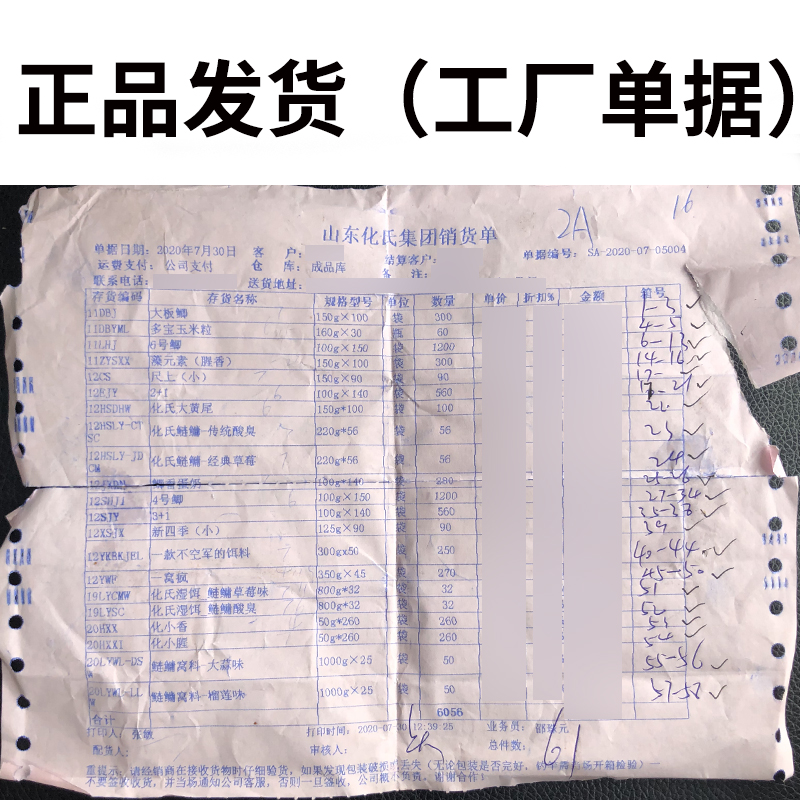 正品发货（工厂单据）
2A
16
山东化氏集团销货单
单据日期：2020年7月30日 客 户： 结算客户： 单据编号：SA-2020-07-05004
运费支付：公司支付 仓 库：成品库 备 注：
联系电话： 送货地址：
存货编码 存货名称 规格型号 单位 数量 单价 折扣% 金额 箱号
11DBJ 大板鲫 150g×100 袋 300 1-3
11DBYML 多宝玉米粒 160g×30 瓶 60 4-5
11LHJ 6号鲫 100g×150 袋 1200 6-13
11ZYSXX 藻元素（腥香） 150g×100 袋 300 14-16
12CS 尺上（小） 150g×90 袋 90
12EJY 2+1 100g×140 袋 560
12HSDHW 化氏大黄尾 150g*100 袋 100
12HSLY-CTSC 化氏鲢鳙-传统酸臭 220g*56 袋 56 23
12HSLY-JDCM 化氏鲢鳙-经典草莓 220g*56 袋 56 24
100g*140 袋 280
4号鲫 100g×150 袋 1200 27-34
12SJY 3+1 100g×140 袋 560 35-38
12XSJX 新四季（小） 125g×90 袋 90 39
12YKBKJEL 一款不空军的饵料 300gx50 袋 250 40-44
12YWF 一窝疯 350g×45 袋 270 45-50
19LYCMW 化氏湿饵_鲢鳙草莓味 800g*32 袋 32 51
19LYSC 化氏湿饵_鲢鳙酸臭 800g*32 袋 32 52
20HXX 化小香 50g*260 袋 260 53
20HXXI 化小腥 50g*260 袋 260 54
20LYWL-DSW 鲢鳙窝料-大蒜味 1000g×25 袋 50 55-56
20LYWL-LLW 鲢鳙窝料-榴莲味 1000g×25 袋 50 57-58
合计 6056
打印人：张敏 打印时间：2020-07-30 12:39:25 业务员：
配货人： 审核人： 总件数： 61
重提示：请经销商在接收货物时仔细验货，如果发现包装破损
不要签收收货，并当场通知公司客服，否则一旦签收，公司概不负责，谢谢合作！